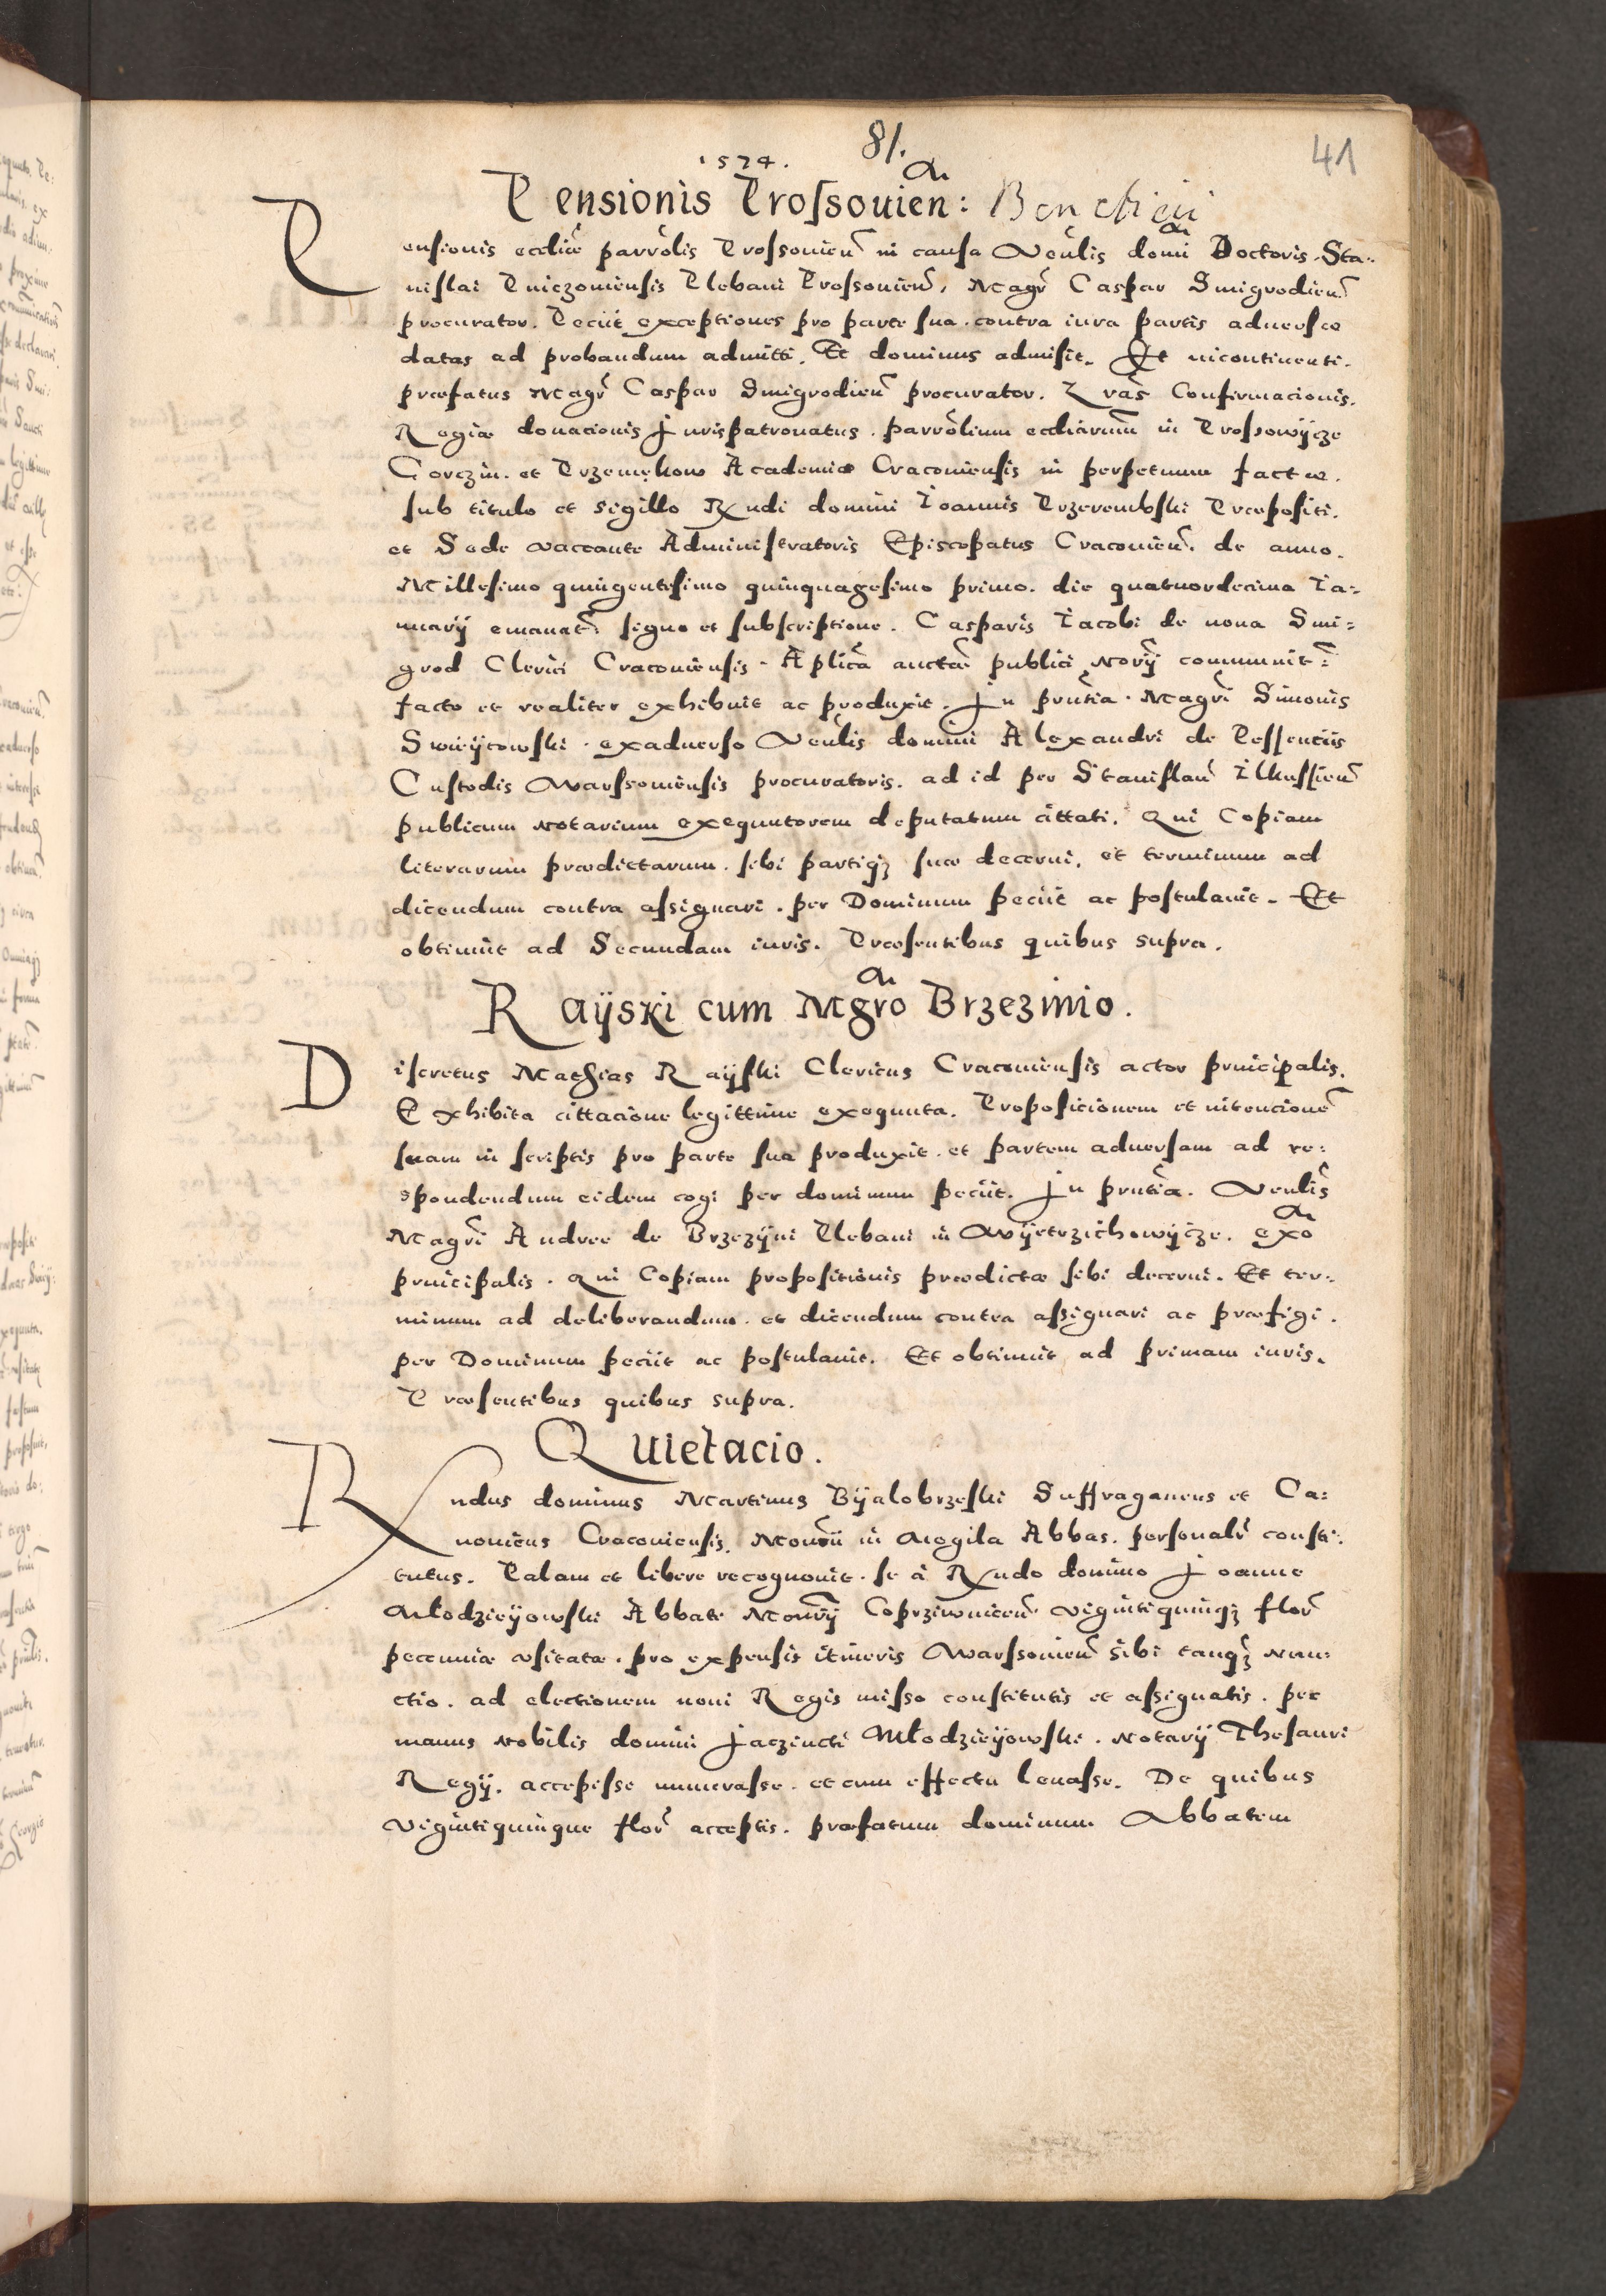 81.
41
1574.
Pensionis Prossouien: Beneficii
Pensionis ecclie parrolis Prossouien in causa Venlis domi Doctoris Sta-
nislai Pniczouiensis Plebani Prossouien, Magr Caspar Smigrodien
procurator. Peciit exceptiones pro parte sua contra iura partis aduersæ
datas ad probandum admitti. Et dominus admisit. Et incontinenti.
præfatus Magr Caspar Smigrodien procurator. Lras Confirmacionis.
Regiæ donacionis Jurispatronatus. parrolium eccliarum in Prossowycze
Gorczin. et Przemękow Academiæ Cracouiensis in perpetuum factæ.
sub titulo et sigillo Rndi domini Ioannis Przerembski Præpositi.
et Sede vaccante Administratoris Episcopatus Cracouien. de anno.
Millesimo quingentesimo quinquagesimo primo. die quatuordecima Ia-
nuarij emanat. signo et subscriptione. Casparis Iacobi de noua Smi=
grod Clerici Cracouiensis. Aplica aucte publici Norij communit:
facto et realiter exhibuit ac produxit. Jn pntia. Magri Simonis
Swieycowski. exaduerso Venlis domini Alexandri de Pessentiis
Custodis Warssouiensis procuratoris. ad id per Stanislau Ilkussien
publicum Notarium exequutorem deputatum cittati. Qui Copiam
literarum prædictarum. sibi partiqz suæ decerni, et terminum ad
dicendum contra assignari. per Dominum peciit ac postulauit. Et
obtinuit ad Secundam iuris. Præsentibus quibus supra.
Raijski cum Mgro Brzezinio.
Discretus Mathias Raijski Clericus Cracouiensis actor principalis.
Exhibita cittacione legittime exequuta. Proposicionem et intencione
suam in scriptis pro parte sua produxit. et partem aduersam ad re:
spondendum eidem cogi per dominum peciit. Jn pntia. Venlis
Magri Andree de Brzezijni Plebani in Wijetrzichowijcze. exo
principalis. Qui Copiam propositionis prædictæ sibi decerni. Et ter-
minum ad deliberandum. et dicendum contra assignari ac præfigi.
per Dominum peciit ac postulauit. Et obtinuit ad primam iuris.
Præsentibus quibus supra.
Quietacio.
Rndus dominus Martinus Bijalobrzeski Suffraganeus et Ca:
nonicus Cracouiensis. Monrii in Mogila Abbas. personalr consti:
tutus. Palam et libere recognouit. se à Rndo domino Joanne
Młodzieijowski Abbate Monrij Coprziwnicen viginti quinqz flor
pecuniæ vsitatæ. pro expensis itineris Warssouien sibi tanqz nun:
ctio. ad electionem noui Regis misso constitutis et assignatis. per
manus Nobilis domini Jaczincti Młodzieijowski. Notarij Thesauri
Regij. accepisse numerasse. et cum effectu leuasse. De quibus
vigintiquinque flor acceptis. præfatum dominum Abbatem